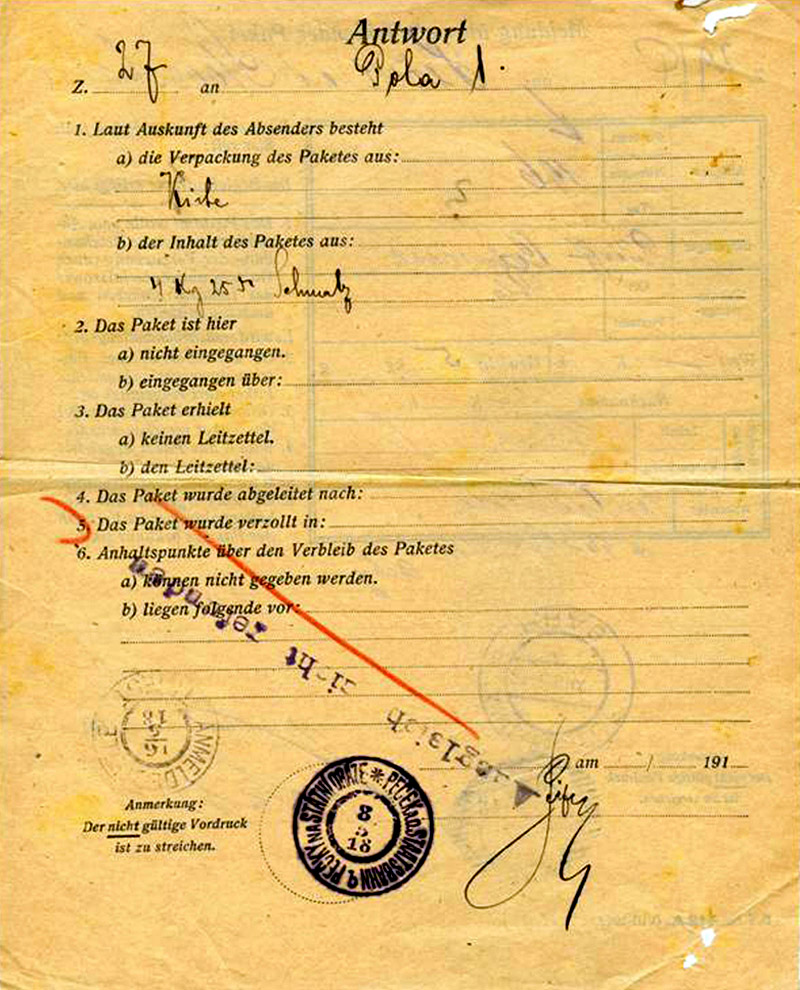 Antwort
Z. 27 an Pola 1.
1. Laut Auskunft des Absenders besteht
a) die Verpackung des Paketes aus:
Kiste
b) der Inhalt des Paketes aus:
4 Kg 25 Schmalz
2. Das Paket ist hier
a) nicht eingegangen.
b) eingegangen über:
3. Das Paket erhielt
a) keinen Leitzettel.
b) den Leitzettel:
4. Das Paket wurde abgeleitet nach:
5. Das Paket wurde verzollt in:
6. Anhaltspunkte über den Verbleib des Paketes
a) können nicht gegeben werden.
b) liegen folgende vor:
Ausgleich
nicht
am 191
Anmerkung:
Der nicht gültige Vordruck
ist zu streichen.
PEČEK A.D. STAATSBAHN
PEČKY NA STÁTNÍ DRÁZE
8
5
18
ANMELD
15
5
18